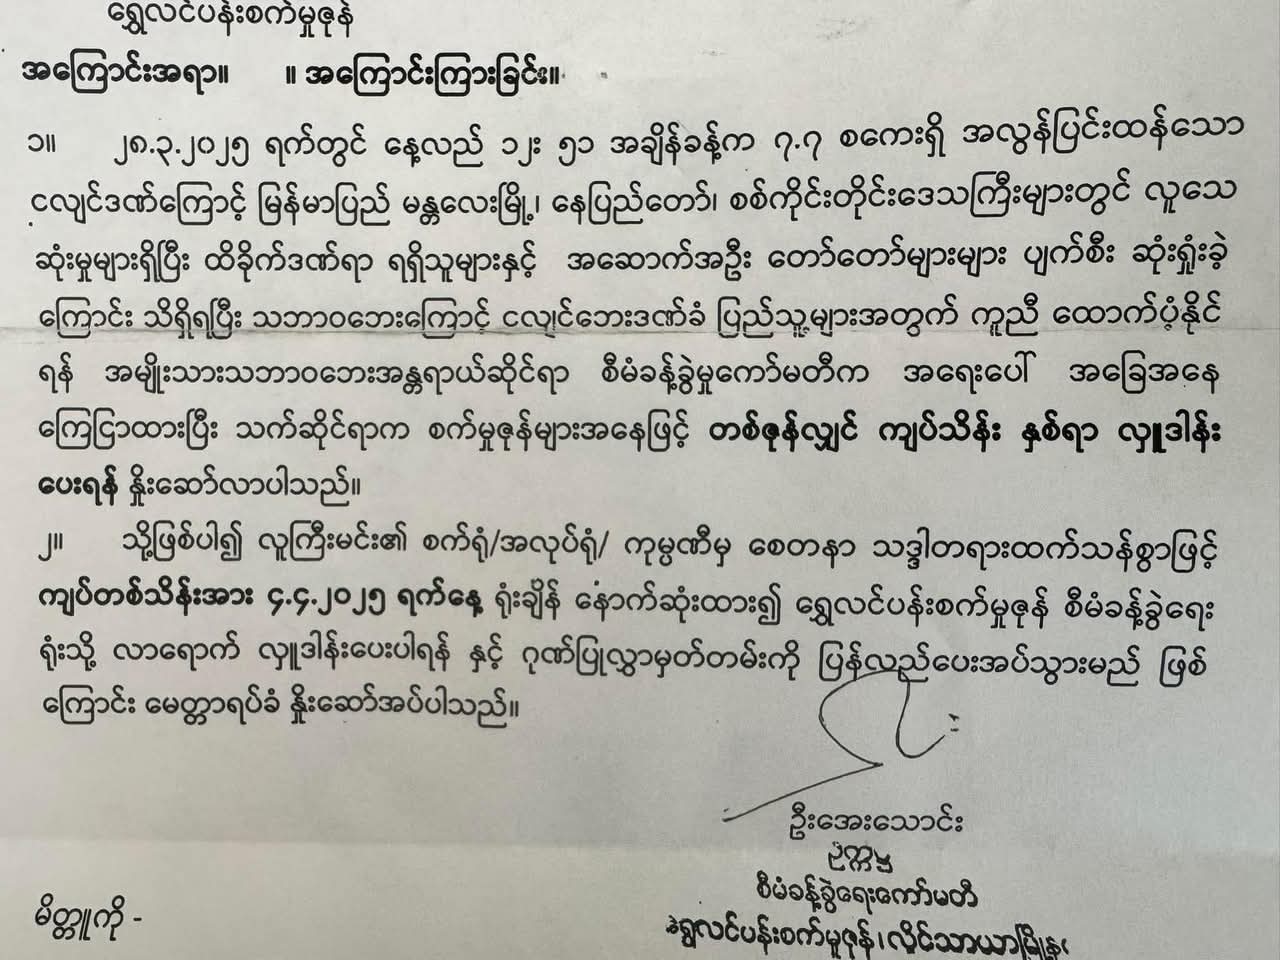 ရွှေလင်ပန်းစက်မှုဇုန်
အကြောင်းအရာ။ ။ အကြောင်းကြားခြင်း။
၁။ ၂၈.၃.၂၀၂၅ ရက်တွင် နေ့လည် ၁၂း ၅၁ အချိန်ခန့်က ၇.၇ စကေးရှိ အလွန်ပြင်းထန်သော
ငလျင်ဒဏ်ကြောင့် မြန်မာပြည် မန္တလေးမြို့၊ နေပြည်တော်၊ စစ်ကိုင်းတိုင်းဒေသကြီးများတွင် လူသေ
ဆုံးမှုများရှိပြီး ထိခိုက်ဒဏ်ရာ ရရှိသူများနှင့် အဆောက်အဦး တော်တော်များများ ပျက်စီး ဆုံးရှုံးခဲ့
ကြောင်း သိရှိရပြီး သဘာဝဘေးကြောင့် ငလျင်ဘေးဒဏ်ခံ ပြည်သူ့များအတွက် ကူညီ ထောက်ပံ့နိုင်
ရန် အမျိုးသားသဘာဝဘေးအန္တရာယ်ဆိုင်ရာ စီမံခန့်ခွဲမှုကော်မတီက အရေးပေါ် အခြေအနေ
ကြေငြာထားပြီး သက်ဆိုင်ရာက စက်မှုဇုန်များအနေဖြင့် တစ်ဇုန်လျှင် ကျပ်သိန်း နှစ်ရာ လှူဒါန်း
ပေးရန် နှိုးဆော်လာပါသည်။
၂။ သို့ဖြစ်ပါ၍ လူကြီးမင်း၏ စက်ရုံ/အလုပ်ရုံ/ ကုမ္ပဏီမှ စေတနာ သဒ္ဒါတရားထက်သန်စွာဖြင့်
ကျပ်တစ်သိန်းအား ၄.၄.၂၀၂၅ ရက်နေ့ ရုံးချိန် နောက်ဆုံးထား၍ ရွှေလင်ပန်းစက်မှုဇုန် စီမံခန့်ခွဲရေး
ရုံးသို့ လာရောက် လှူဒါန်းပေးပါရန် နှင့် ဂုဏ်ပြုလွှာမှတ်တမ်းကို ပြန်လည်ပေးအပ်သွားမည် ဖြစ်
ကြောင်း မေတ္တာရပ်ခံ နှိုးဆော်အပ်ပါသည်။
ဦးအေးသောင်း
ဥက္ကဋ္ဌ
စီမံခန့်ခွဲရေးကော်မတီ
ရွှေလင်ပန်းစက်မှုဇုန်၊လှိုင်သာယာမြို့နယ်
မိတ္တူကို -